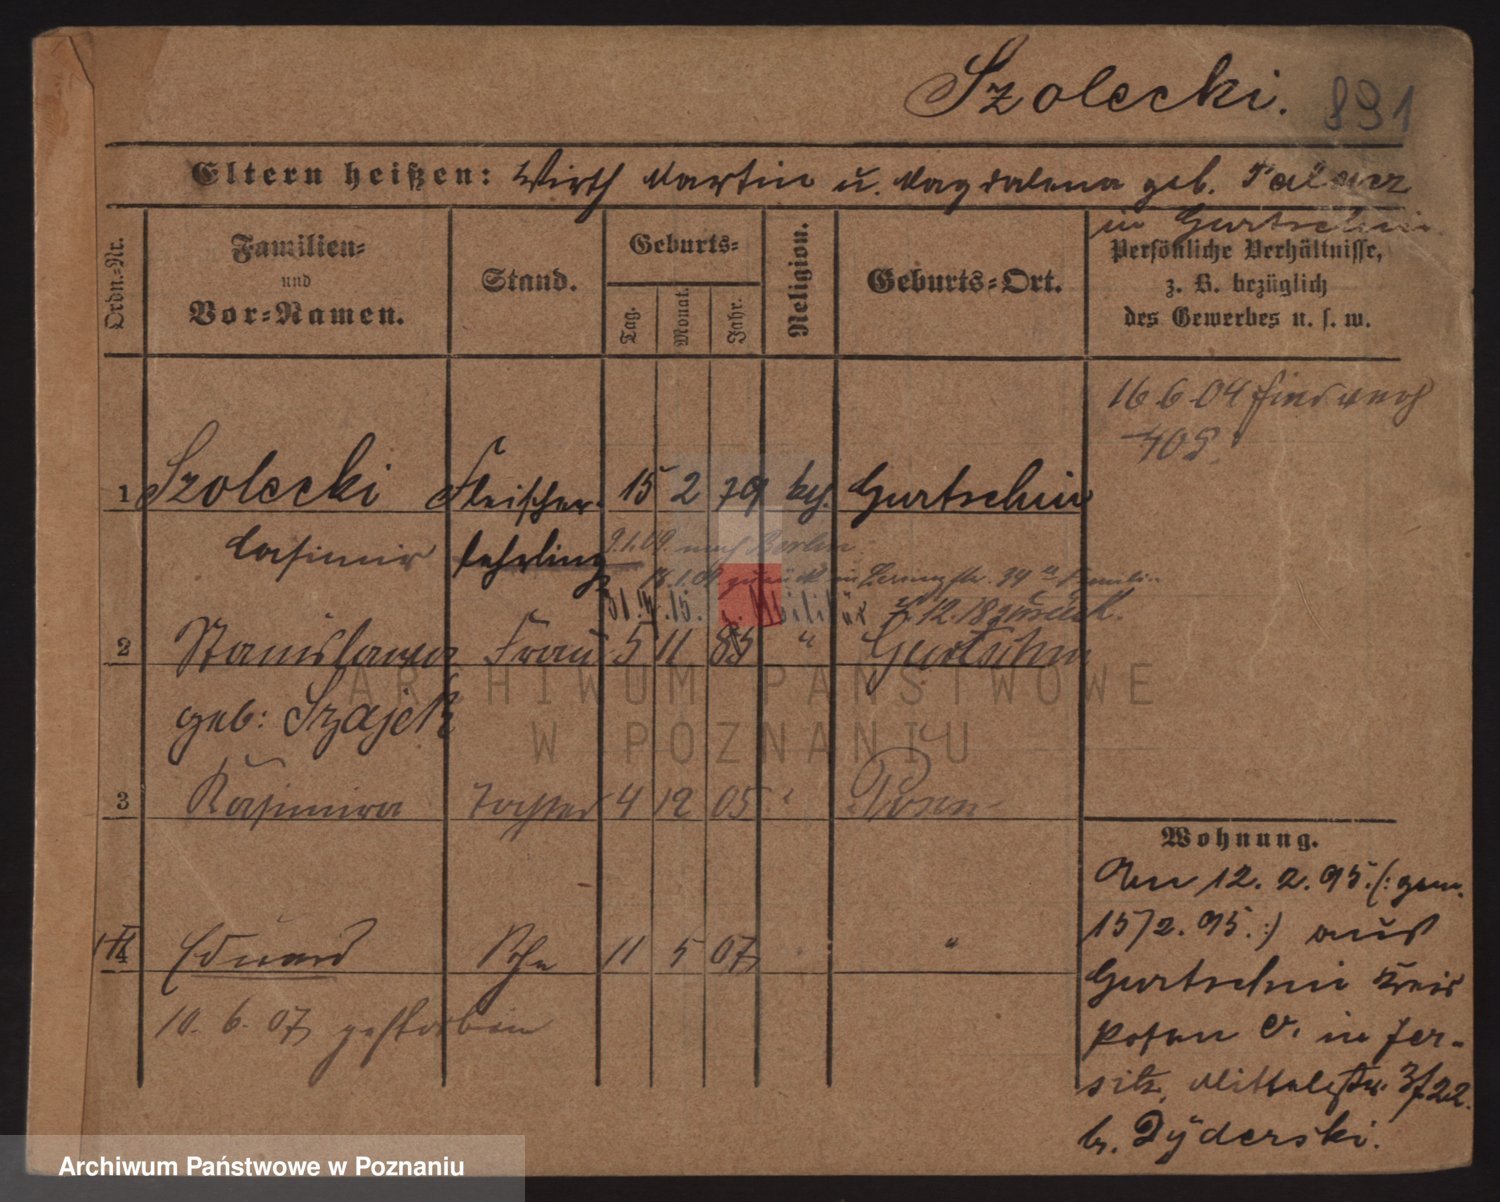 Szolecki. 891
Eltern heißen: Wirth Martin u. Magdalena geb.
in Gurtschin
Ordn.-Nr.
Familien-
und
Vor-Namen.
Stand.
Geburts-
Tag. Monat. Jahr.
Religion.
Geburts-Ort.
Persönliche Verhältnisse,
z. B. bezüglich
des Gewerbes u. s. w.
16.6.04
1 Szolecki Fleischer- 15 2 79 kth. Gurtschin
Casimir lehrling
9.1.09. nach Berlin
18.1.09 zurück in 
31. 15. z. Militär 12.18 zurück.
2 Stanislawa Frau 5 11 85 " Gurtschin
geb: Szajek
ARCHIWUM PAŃSTWOWE
W POZNANIU
3 Kasimira Tochter 4 12 05 " Posen
4 Eduard Sohn 11 5 07 "
10. 6. 07 gestorben
Wohnung.
Am 12. 2. 95. (: gem.
15/2. 95. :) aus
Gurtschin Kreis
Posen O. in Jer-
sitz, Mittelstr. 3/22.
b. Dyderski.
Archiwum Państwowe w Poznaniu